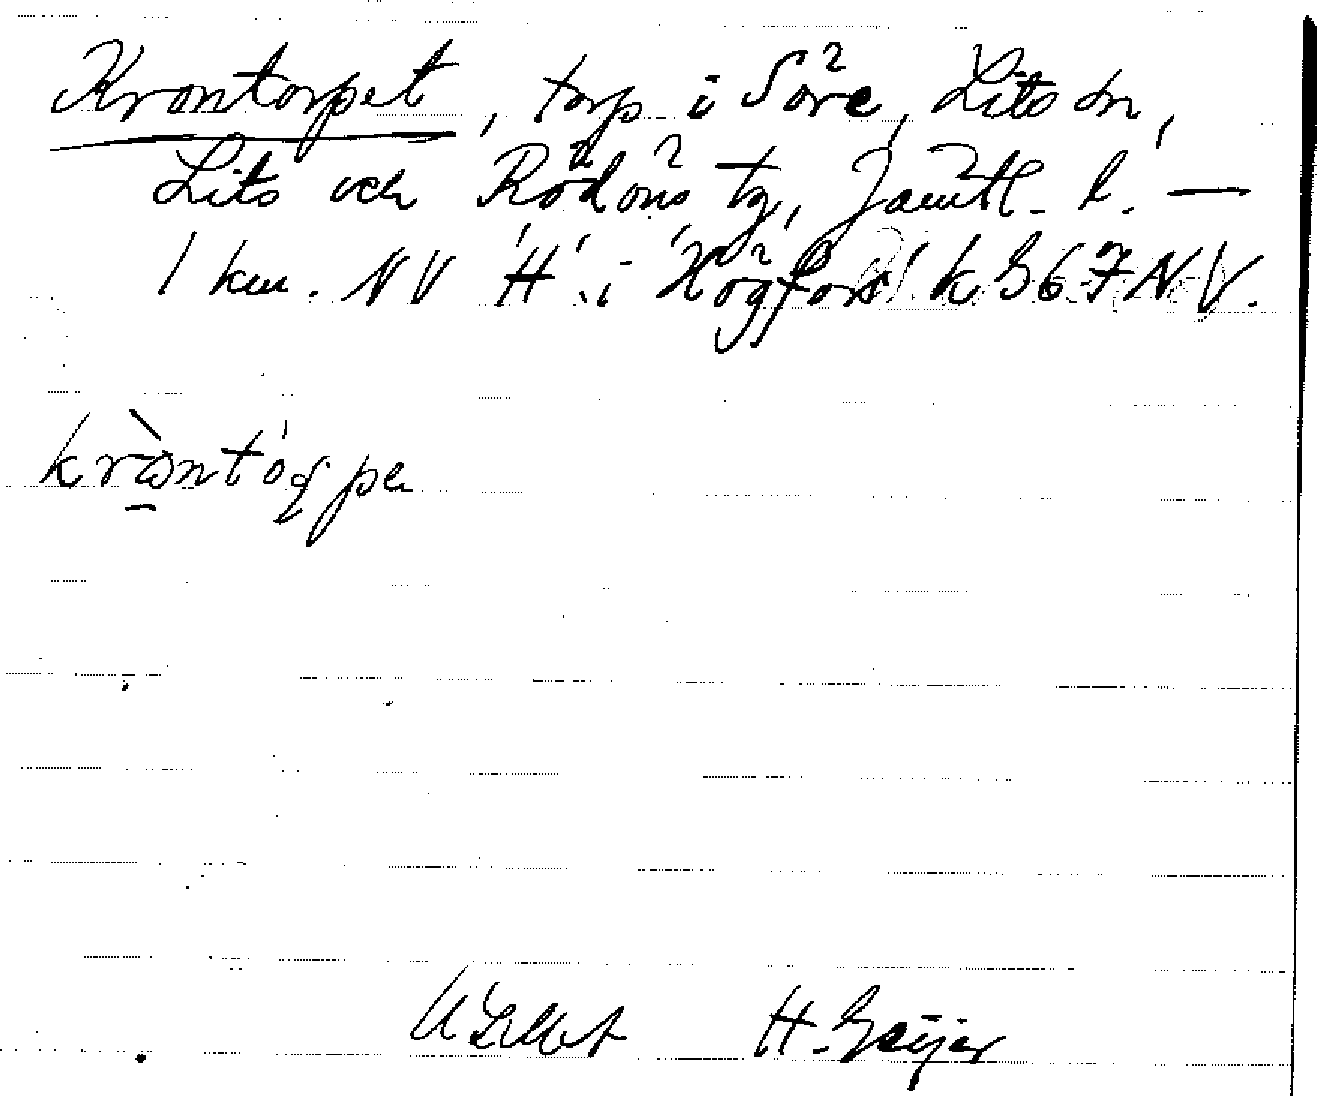 Krontorpet, torp i Söre, Lits sn,
Lits och Rödöns tg, Jämtl. l. —
1 km. NV 'H' i 'Högfors' k G 67 NV.
H. Geijer